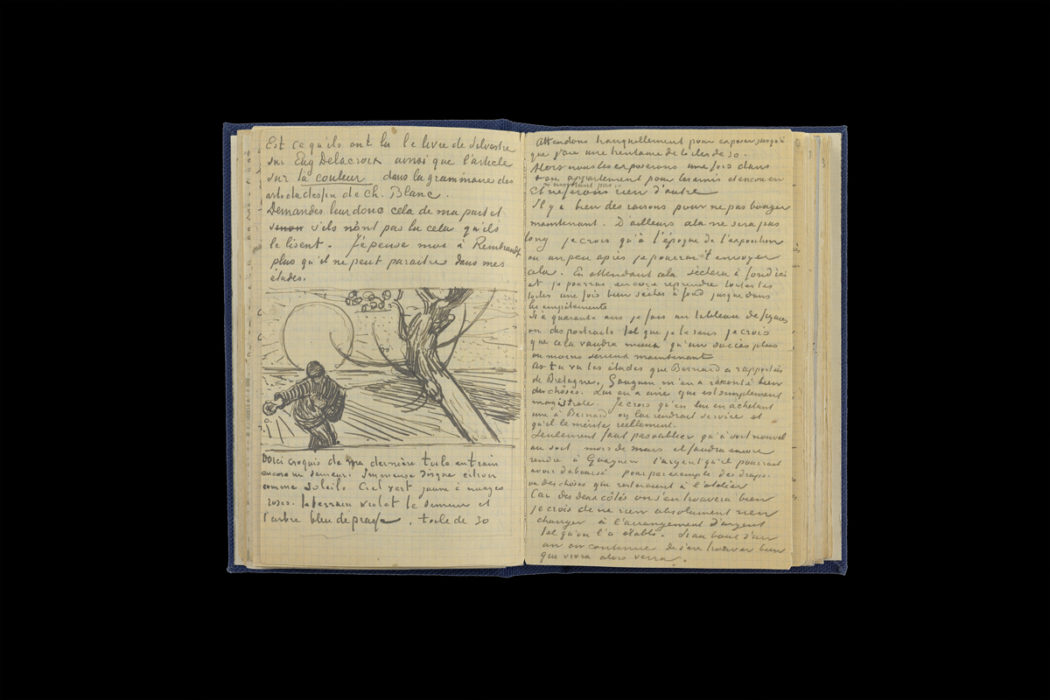 Est ce qu'ils ont lu le livre de Silvestre
sur Eug Delacroix ainsi que l'article
sur la couleur dans la grammaire des
arts du dessin de Ch. Blanc.
Demandes leur donc cela de ma part et
sinon s'ils n'ont pas lu cela qu'ils
le lisent. J'epense moi à Rembrandt
plus qu'il ne peut paraitre dans mes
études.
Voici croquis de ma dernière toile en train
encore un semeur. Immense disque citron
comme soleil. Ciel vert jaune à nuages
roses. le terrain violet le semeur et
l'arbre bleu de prusse. toile de 30
Attendons tranquillement pour exposer jusqu'à
que j'aie une trentaine de toiles de 30.
Alors nous les exposerons une fois dans
ton appartement pour les amis et encore en
n'insistant pas
Et ne ferons rien d'autre
Il y a bien des raisons pour ne pas bouger
maintenant. D'ailleurs cela ne sera pas
long je crois qu'à l'époque de l'exposition
ou un peu après je pourrai t'envoyer
cela. En attendant cela sèchera à fond ici
et je pourrai encore reprendre toutes les
toiles une fois bien seches à fond jusque dans
les empâtements
Si à quarante ans je fais un tableau de figures
ou des portraits tel que je le sens je crois
que cela vaudra mieux qu'un succès plus
ou moins sérieux maintenant
As tu vu les études que Bernard a rapportées
de Bretagne, Gauguin m'en a raconté bien
des choses. Lui en a une que est simplement
magistrale. Je crois qu'en lui en achetant
une à Bernard on lui rendrait service et
qu'il le mérite reellement.
Seulement faut pas oublier qu'à vont nouvel
an soit mois de mars il faudra encore
rendre à Gauguin l'argent qu'il pourrait
avoir déboursé pour par exemple des draps
ou des choses qui resteraient à l'atelier
Car des deux côtés on s'en trouvera bien
je crois de ne rien absolument rien
changer à l'arrangement d'argent
tel qu'on l'a établi. Si au bout d'un
an on continue de s'en trouver bien
que vivra alors verra.